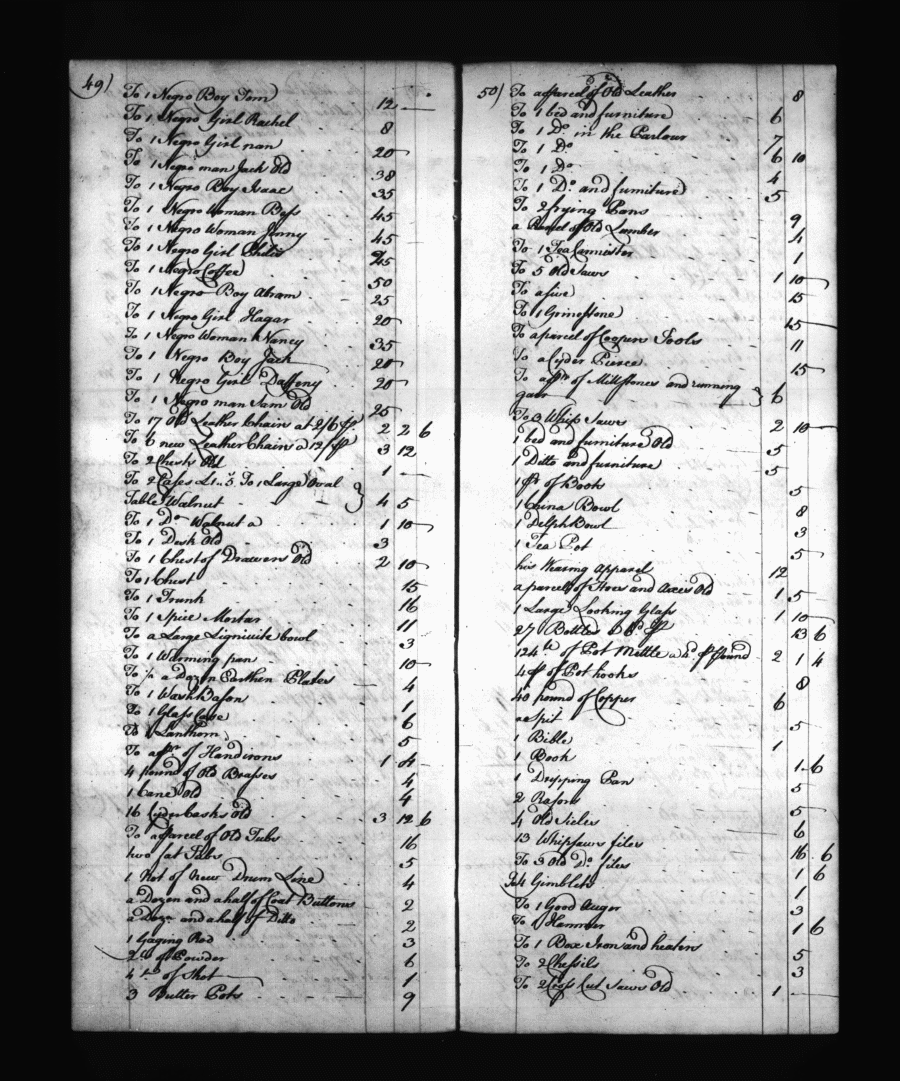 49)
To 1 Negro Boy Tom 12 —
To 1 Negro Girl Rachel 8
To 1 Negro Girl nan 20
To 1 Negro man Jack Old 38
To 1 Negro Boy Isaac 35
To 1 Negro Woman Bess 45
To 1 Negro Woman Jenny 45
To 1 Negro Girl Phillis 45
To 1 Negro Coffee 50
To 1 Negro Boy Abram 25
To 1 Negro Girl Hagar 20
To 1 Negro Woman Nancy 35
To 1 Negro Boy Jack 20
To 1 Negro Girl Daffeny 20
To 1 Negro man Sam Old 25
To 17 Old Leather Chairs at 2/6 pr 2 2 6
To 6 new Leather Chairs a 12/ pr 3 12
To 2 Chests Old 1 —
To 2 Cases £1..5. To 1 Large Oval
Table Walnut 4 5
To 1 Do Walnut a 1 10
To 1 Desk Old 3
To 1 Chest of Drawers Old 2 10
To 1 Chest 15
To 1 Trunk 16
To 1 Spice Mortar 11
To a Large Lignivite bowl 3
To 1 Warming pan 10
To ½ a Dozen Earthen Plates 4
To 1 Wash Bason 1
To 1 Glass Case 6
To 1 Lanthorn 5
To a pr of Handirons 1 4
4 pound of Old Brasses 4
1 Cane Old 4
16 Cyder Casks Old 3 12 6
To a parcel of Old Tubs 16
two fat Tubs 5
1 Not of New Drum Line 4
a Dozen and a half of Coat Buttons 2
a Dozn and a half of Ditto 2
1 Gaging Rod 3
2 lb of Powder 6
4 lb of Shot 1
3 Butter Pots 9
50)
To a parcel of Old Leather 8
To 1 bed and furniture 6
To 1 Do in the Parlour 7
To 1 Do 6 10
To 1 Do 4
To 1 Do and furniture 5
To 2 frying Pans 9
a Parcel of Old Lumber 4
To 1 Tea Cannister 1
To 5 Old Saws 1 10
To a sive 15
To 1 Grinestone 15
To a parcel of Coopers Tools 11
To a Cyder Pierce 15
To a pr of Millstones and running
gair 6
To 3 Whip Saws 2 10
1 bed and furniture Old 5
1 Ditto and furniture 5
1 pr of Books 5
1 China Bowl 8
1 Delph Bowl 3
1 Tea Pot 5
his Wearing Apparel 12
a parcel of Hoes and Axes Old 1 5
1 Large Looking Glass 1 10
27 Bottles a 6d pr 13 6
124 lb of Pot Mettle a 4d pr pound 2 1 4
4 pr of Pot hooks 8
40 pound of Copper 6
a Spit 5
1 Bible 1
1 Book 1 6
1 Dripping Pan 5
2 Rasors 5
4 Old Sieles 6
13 Whipsaws files 16 6
To 3 Old Do files 1 6
To 4 Gimblets 1
To 1 Good Auger 3
To 1 Hammer 1 6
To 1 Box Iron and heaters 5
To 2 Chessils 3
To 2 Cross Cut Saws Old 1 —